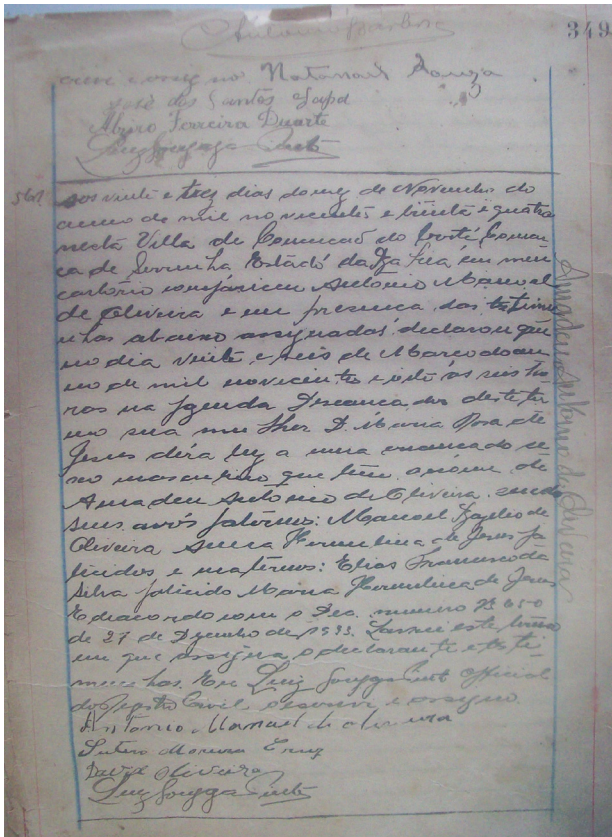 349
Antonio Barbosa
Natanael Souza
José dos Santos Lapa
Alvaro Ferreira Duarte
Luiz Gonzaga Pinto
561
Aos vinte e trez dias do mez de Novembro do
anno de mil novecentos e trinta e quatro
nesta Villa de Conceicaõ do Coité, Comar-
ca de Serrinha, Estado da Bahia em meu
cartorio compareceu Antonio Manoel
de Oliveira e em presenca das testimu-
nhas abaixo assignadas, declarou que
no dia vinte e seis de Marco do an-
no de mil novecentos e oito ás seis ho-
ras na fazenda deste ter-
mo sua mulher D. Maria Rosa de
Jesus déra luz a uma creanca do se-
xo masculino que tem o nome de
Amadeu Antonio de Oliveira, sendo
seus avós paterno: Manoel de
Oliveira Hermelina de Jesus fa-
licidos e maternos: Elias Francisco da
Silva falicido Maria Hermelina de Jesus
E de accordo com o Dec. numero
de 27 de Dezembro de 1933. Lavrei este termo
em que assigna o declarante e teste-
munhas. Eu Luiz Gonzaga Pinto Official
do Registro Civil escrevi e assigno
Antonio Manoel de Oliveira
Moreira Cruz
David Oliveira
Luiz Gonzaga Pinto
Amadeu Antonio de Oliveira